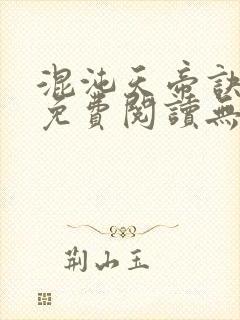 混沌天帝訣
免費閱讀無
荆山玉